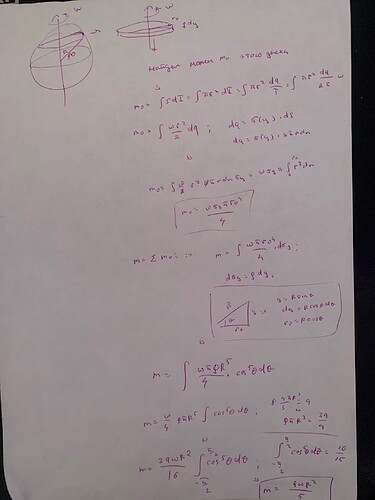 ω
R
θ
y
ω
r₀
ρ dy
Найдем момент m₀ этого диска
m₀ = ∫ S dI = ∫ πr² dI = ∫ πr² dq/T = ∫ πr² dq/2π ω
m₀ = ∫ ωr²/2 dq ; dq = σ(y) · ds
dq = σ(y) · 2πr dr
m₀ = ∫ ω/2 r² 2πr dr σy = ωσyπ ∫₀^r₀ r³ dr
m₀ = ωσyπr₀⁴/4
m = Σ m₀ => m = ∫ ωπr₀⁴/4 dσy ;
dσy = ρ dy.
R
y
θ
r₀
=> y = R sinθ
dy = R cosθ dθ
r₀ = R cosθ
m = ∫ ωπρR⁵/4 · cos⁵θ dθ
m = ω/4 ρπR⁵ ∫ cos⁵θ dθ ; ρ 4/3 πR³ = q
ρπR³ = 3q/4
m = 3qωR²/16 ∫_{-π/2}^{π/2} cos⁵θ dθ ; ∫_{-π/2}^{π/2} cos⁵θ dθ = 16/15
m = qωR²/5